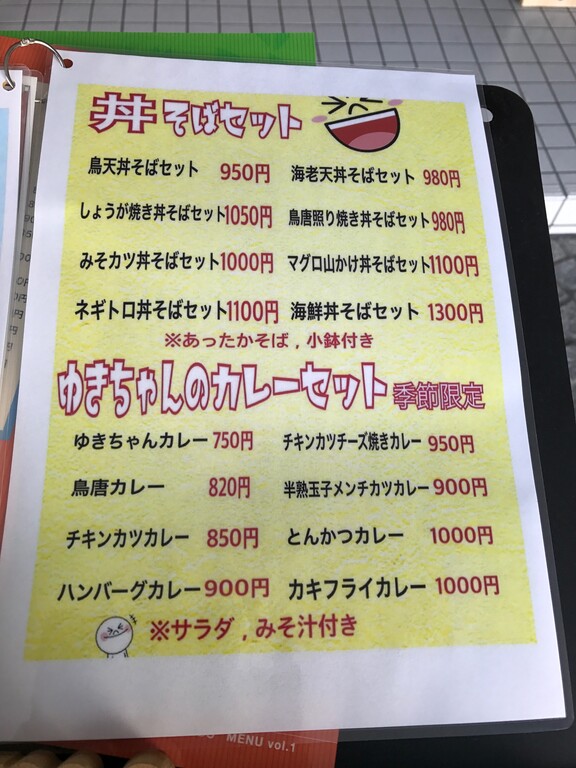 丼そばセット
鳥天丼そばセット 950円 海老天丼そばセット 980円
しょうが焼き丼そばセット 1050円 鳥唐照り焼き丼そばセット 980円
みそカツ丼そばセット 1000円 マグロ山かけ丼そばセット 1100円
ネギトロ丼そばセット 1100円 海鮮丼そばセット 1300円
※あったかそば,小鉢付き
ゆきちゃんのカレーセット 季節限定
ゆきちゃんカレー 750円 チキンカツチーズ焼きカレー 950円
鳥唐カレー 820円 半熟玉子メンチカツカレー 900円
チキンカツカレー 850円 とんかつカレー 1000円
ハンバーグカレー 900円 カキフライカレー 1000円
※サラダ,みそ汁付き
MENU vol.1